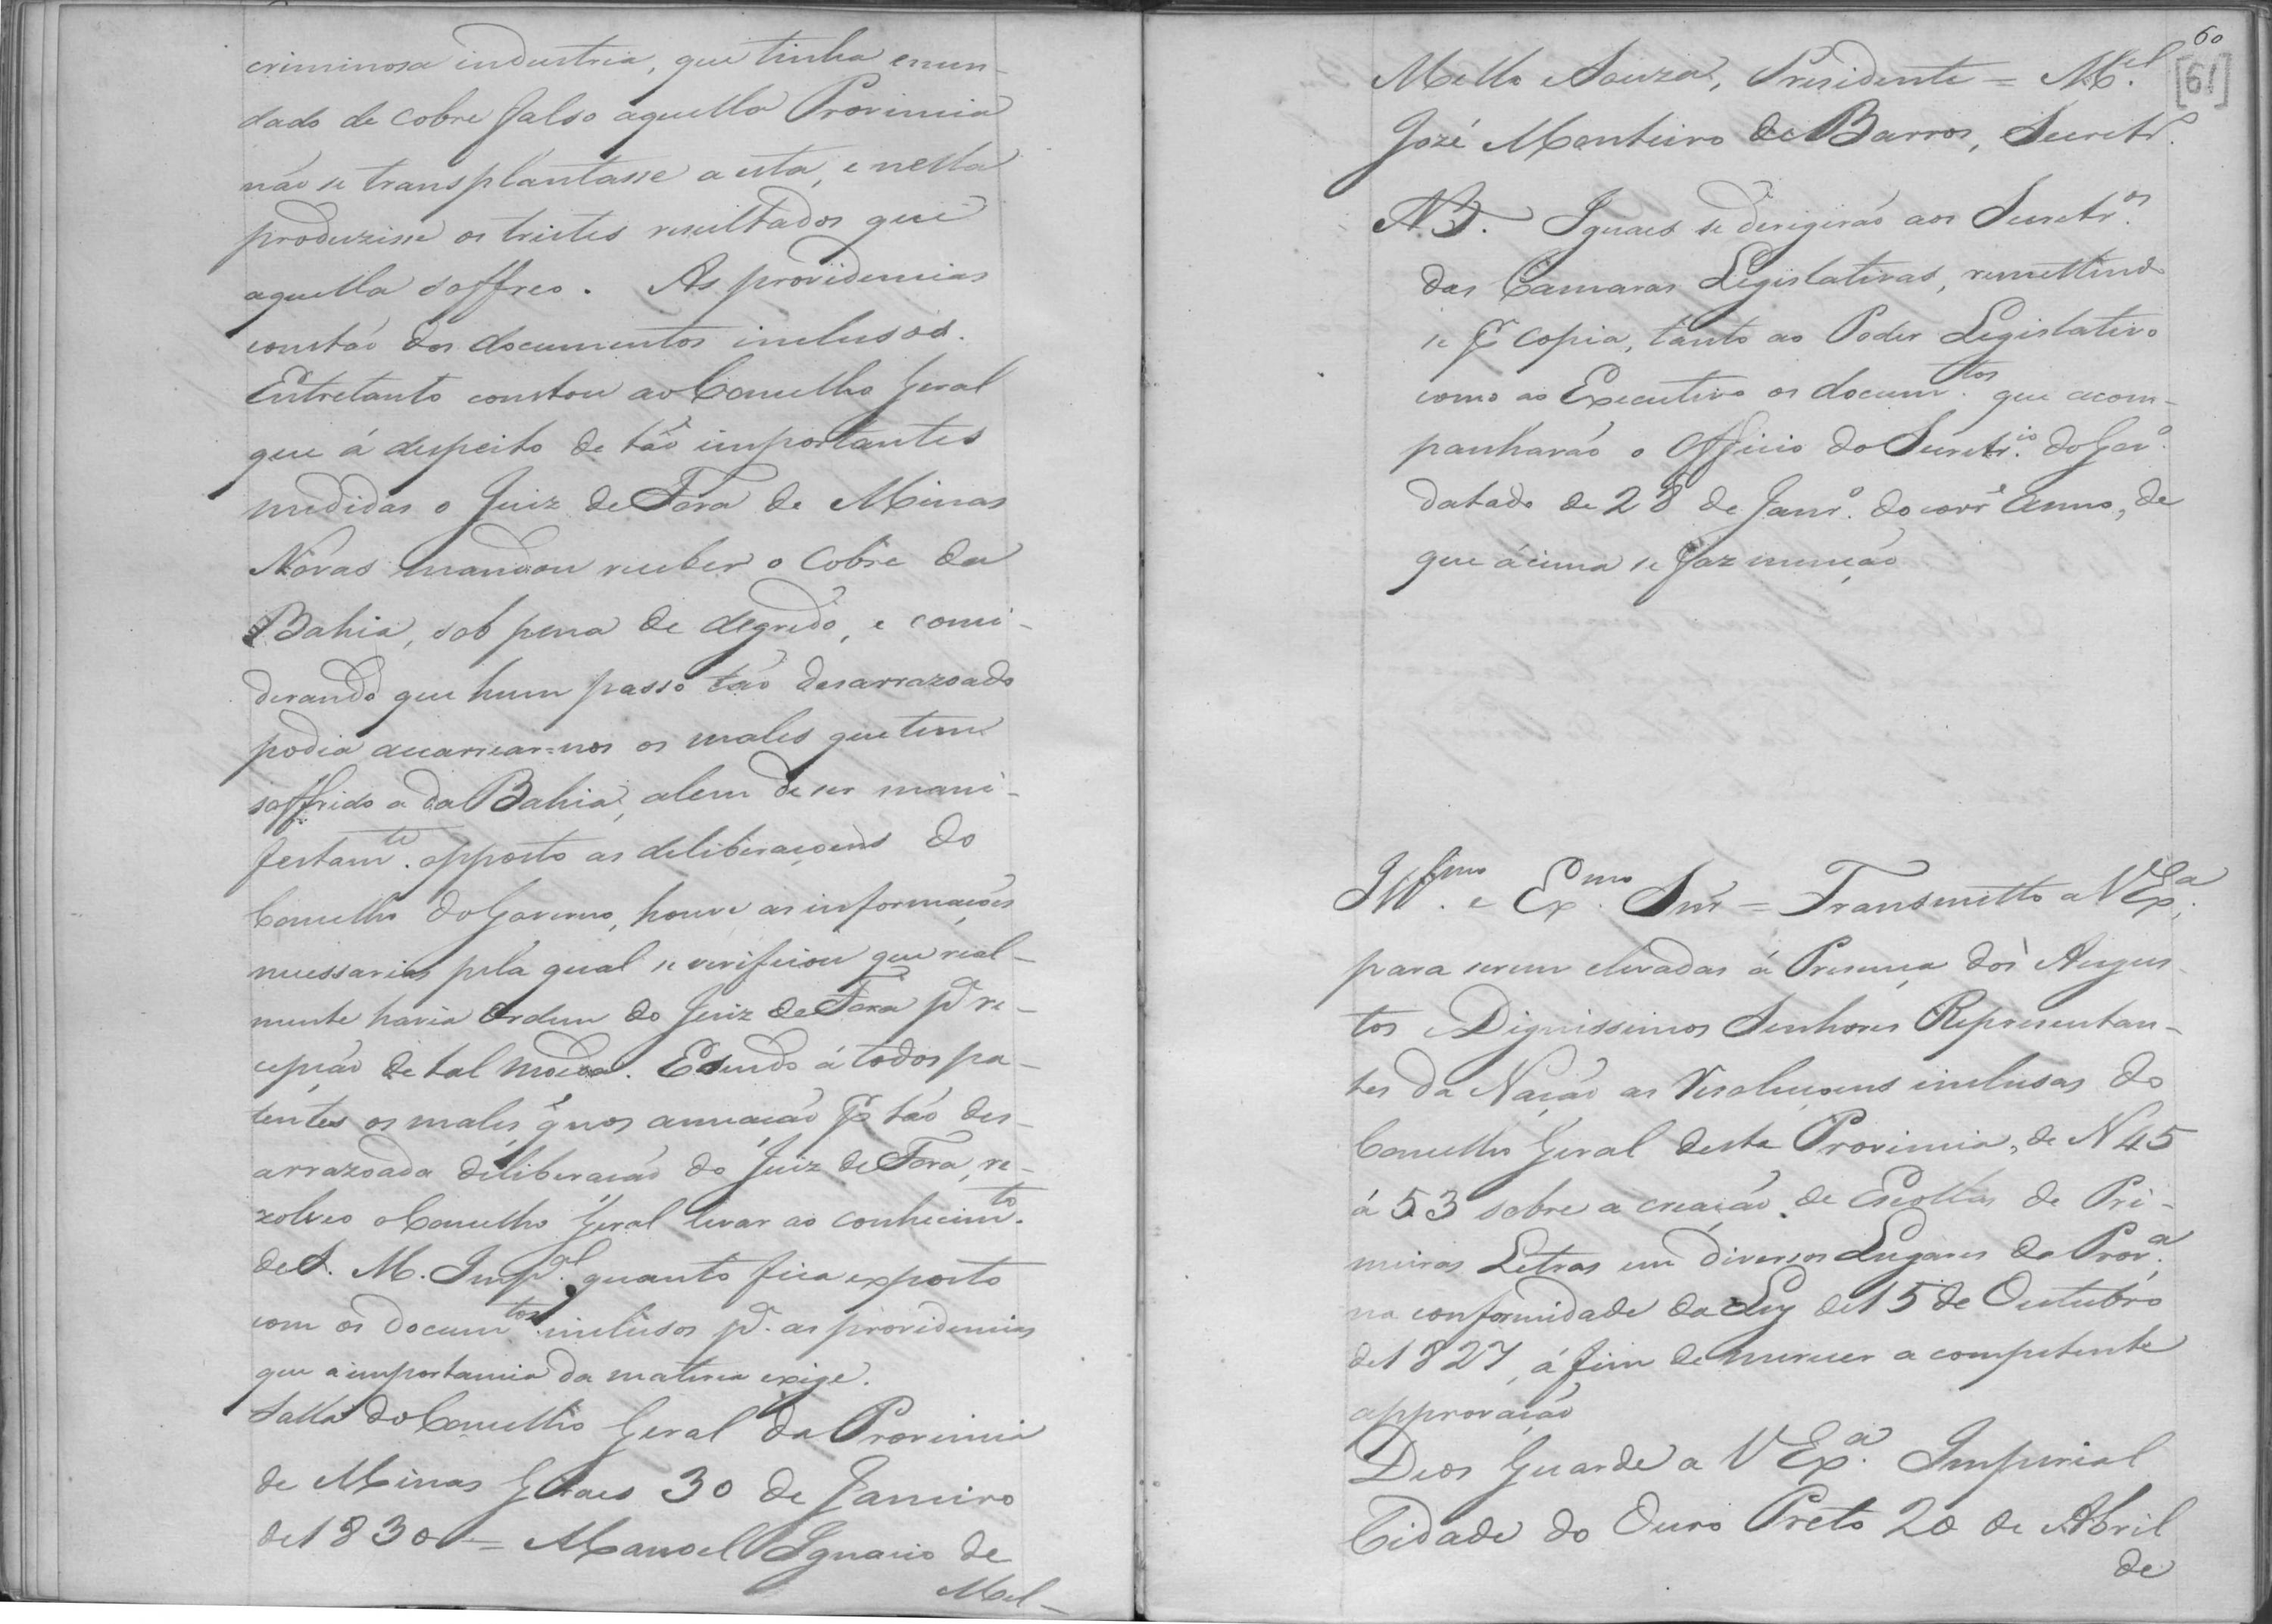 criminosa industria, que tinha enun-
dado de cobre falso aquella Provincia
não se transplantasse a esta, e nella
produzisse os tristes resultados que
aquella soffreo. As providencias
constão dos documentos inclusos.
Entretanto constou ao Concelho Geral
que á despeito de tão importantes
medidas o Juiz de Fora de Minas
Novas mandou receber o Cobre da
Bahia, sob pena de degredo, e consi-
derando que hum passo tão desarrazoado
podia accarrear-nos os males que tem
soffrido a da Bahia, alem de ser mani-
festamte. opposto as deliberaçoens do
Concelho do Governo, houve as informações
necessarias pela qual se verificou que real-
mente havia Ordem do Juiz de Fora pa. re-
cepção de tal moeda. E sendo á todos pa-
tentes os males q' nos annação pr tão des-
arrazoada deliberação do Juiz de Fora, re-
zolveo o Concelho Geral levar ao conhecimto.
de S. M. Impal. quanto fica exposto
com os documtos. inclusos pa. as providencias
que a importancia da materia exige.
Salla do Concelho Geral da Provincia
de Minas Geraes 30 de Janeiro
de 1830 = Manoel Ignacio de
Mel-
60
[61]
Mello e Souza, Presidente = Mel.
José Monteiro de Barros, Secretr.º
N.B. Iguaes se derigirão aos Secretr.os
das Camaras Legislativas, remettindo
se pr copia, tanto ao Poder Legislativo
como ao Executivo os documtos. que acom-
panharão o Officio do Secretr.io do Gov.º
datado de 28 de Janr.º do corre Anno, de
que ácima se faz menção
Illmo. e Exmo. Snr = Transmitto a V Exa.
para serem elevadas á Presença dos Augus-
tos e Dignissimos Senhores Representan-
tes da Nação as Resoluçoens inclusas do
Concelho Geral desta Provincia, de N 45
á 53 sobre a creação de Escollas de Pri-
meiras Letras em diversos Lugares da Prova.
na conformidade da Ley de 15 de Outubro
de 1827, á fim de merecer a competente
approvação
Deos Guarde a V Exa. Imperial
Cidade do Ouro Preto 20 de Abril
de